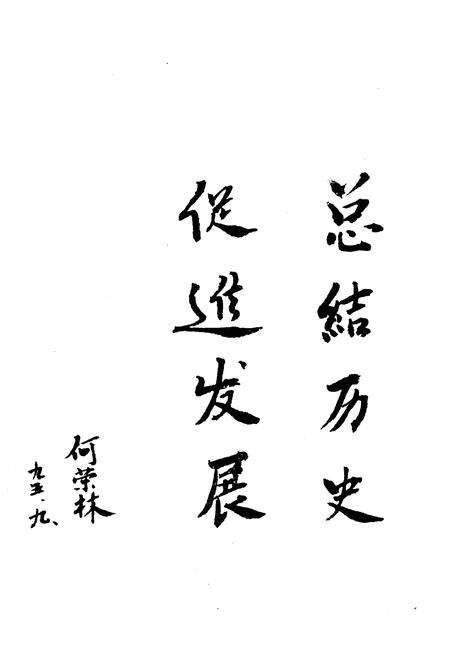 总結历史
促進发展
何荣林
九五.九、